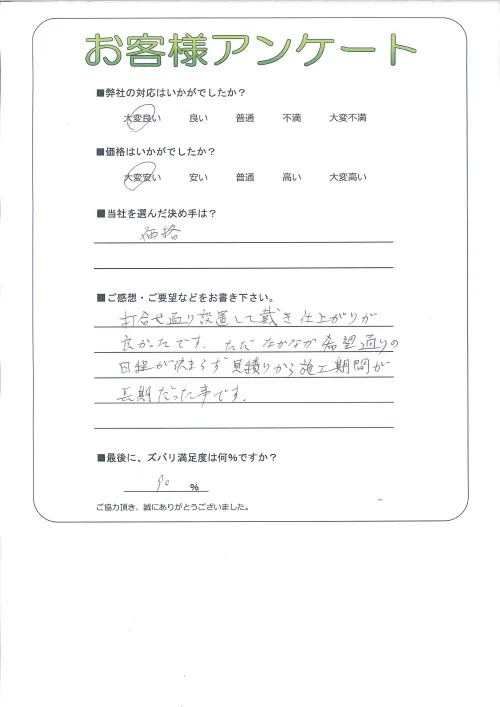 お客様アンケート
■弊社の対応はいかがでしたか？
大変良い 良い 普通 不満 大変不満
■価格はいかがでしたか？
大変安い 安い 普通 高い 大変高い
■当社を選んだ決め手は？
価格
■ご感想・ご要望などをお書き下さい。
打合せ通り設置して戴き仕上がりが
良かったです。ただなかなか希望通りの
日程が決まらず見積りから施工期間が
長期だった事です。
■最後に、ズバリ満足度は何％ですか？
90 ％
ご協力頂き、誠にありがとうございました。